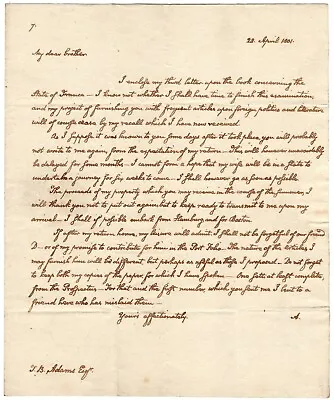 7.
28. April 1801.
My dear brother.
I enclose my third letter upon the book concerning the
State of France — I know not whether I shall have time to finish this examination
and my project of furnishing you with frequent articles upon foreign politics and literature
will of course cease by my recall which I have now received.
As I suppose it was known to you some days after it took place, you will probably
not write to me again, from the expectation of my return — This will however unavoidably
be delayed for some months — I cannot form a hope that my wife will be in a state to
undertake a journey for six weeks to come — I shall however go as soon as possible
The proceeds of my property which you may receive in the course of the summer, I
will thank you not to put out again but to keep ready to transmit to me upon my
arrival — I shall if possible embark from Hamburg and for Boston.
If after my return home, my leisure will admit I shall not be forgetful of our friend
D— or of my promise to contribute for him in the Port Folio. The nature of the articles I
may furnish him will be different but perhaps as useful as those I proposed — Do not forget
to keep both my copies of the paper for which I have spoken — One sett at least complete,
from the Prospectus — For that and the first number, which you sent me I lent to a
friend here who has mislaid them —
Yours affectionately
A.
T. B. Adams Esqr.